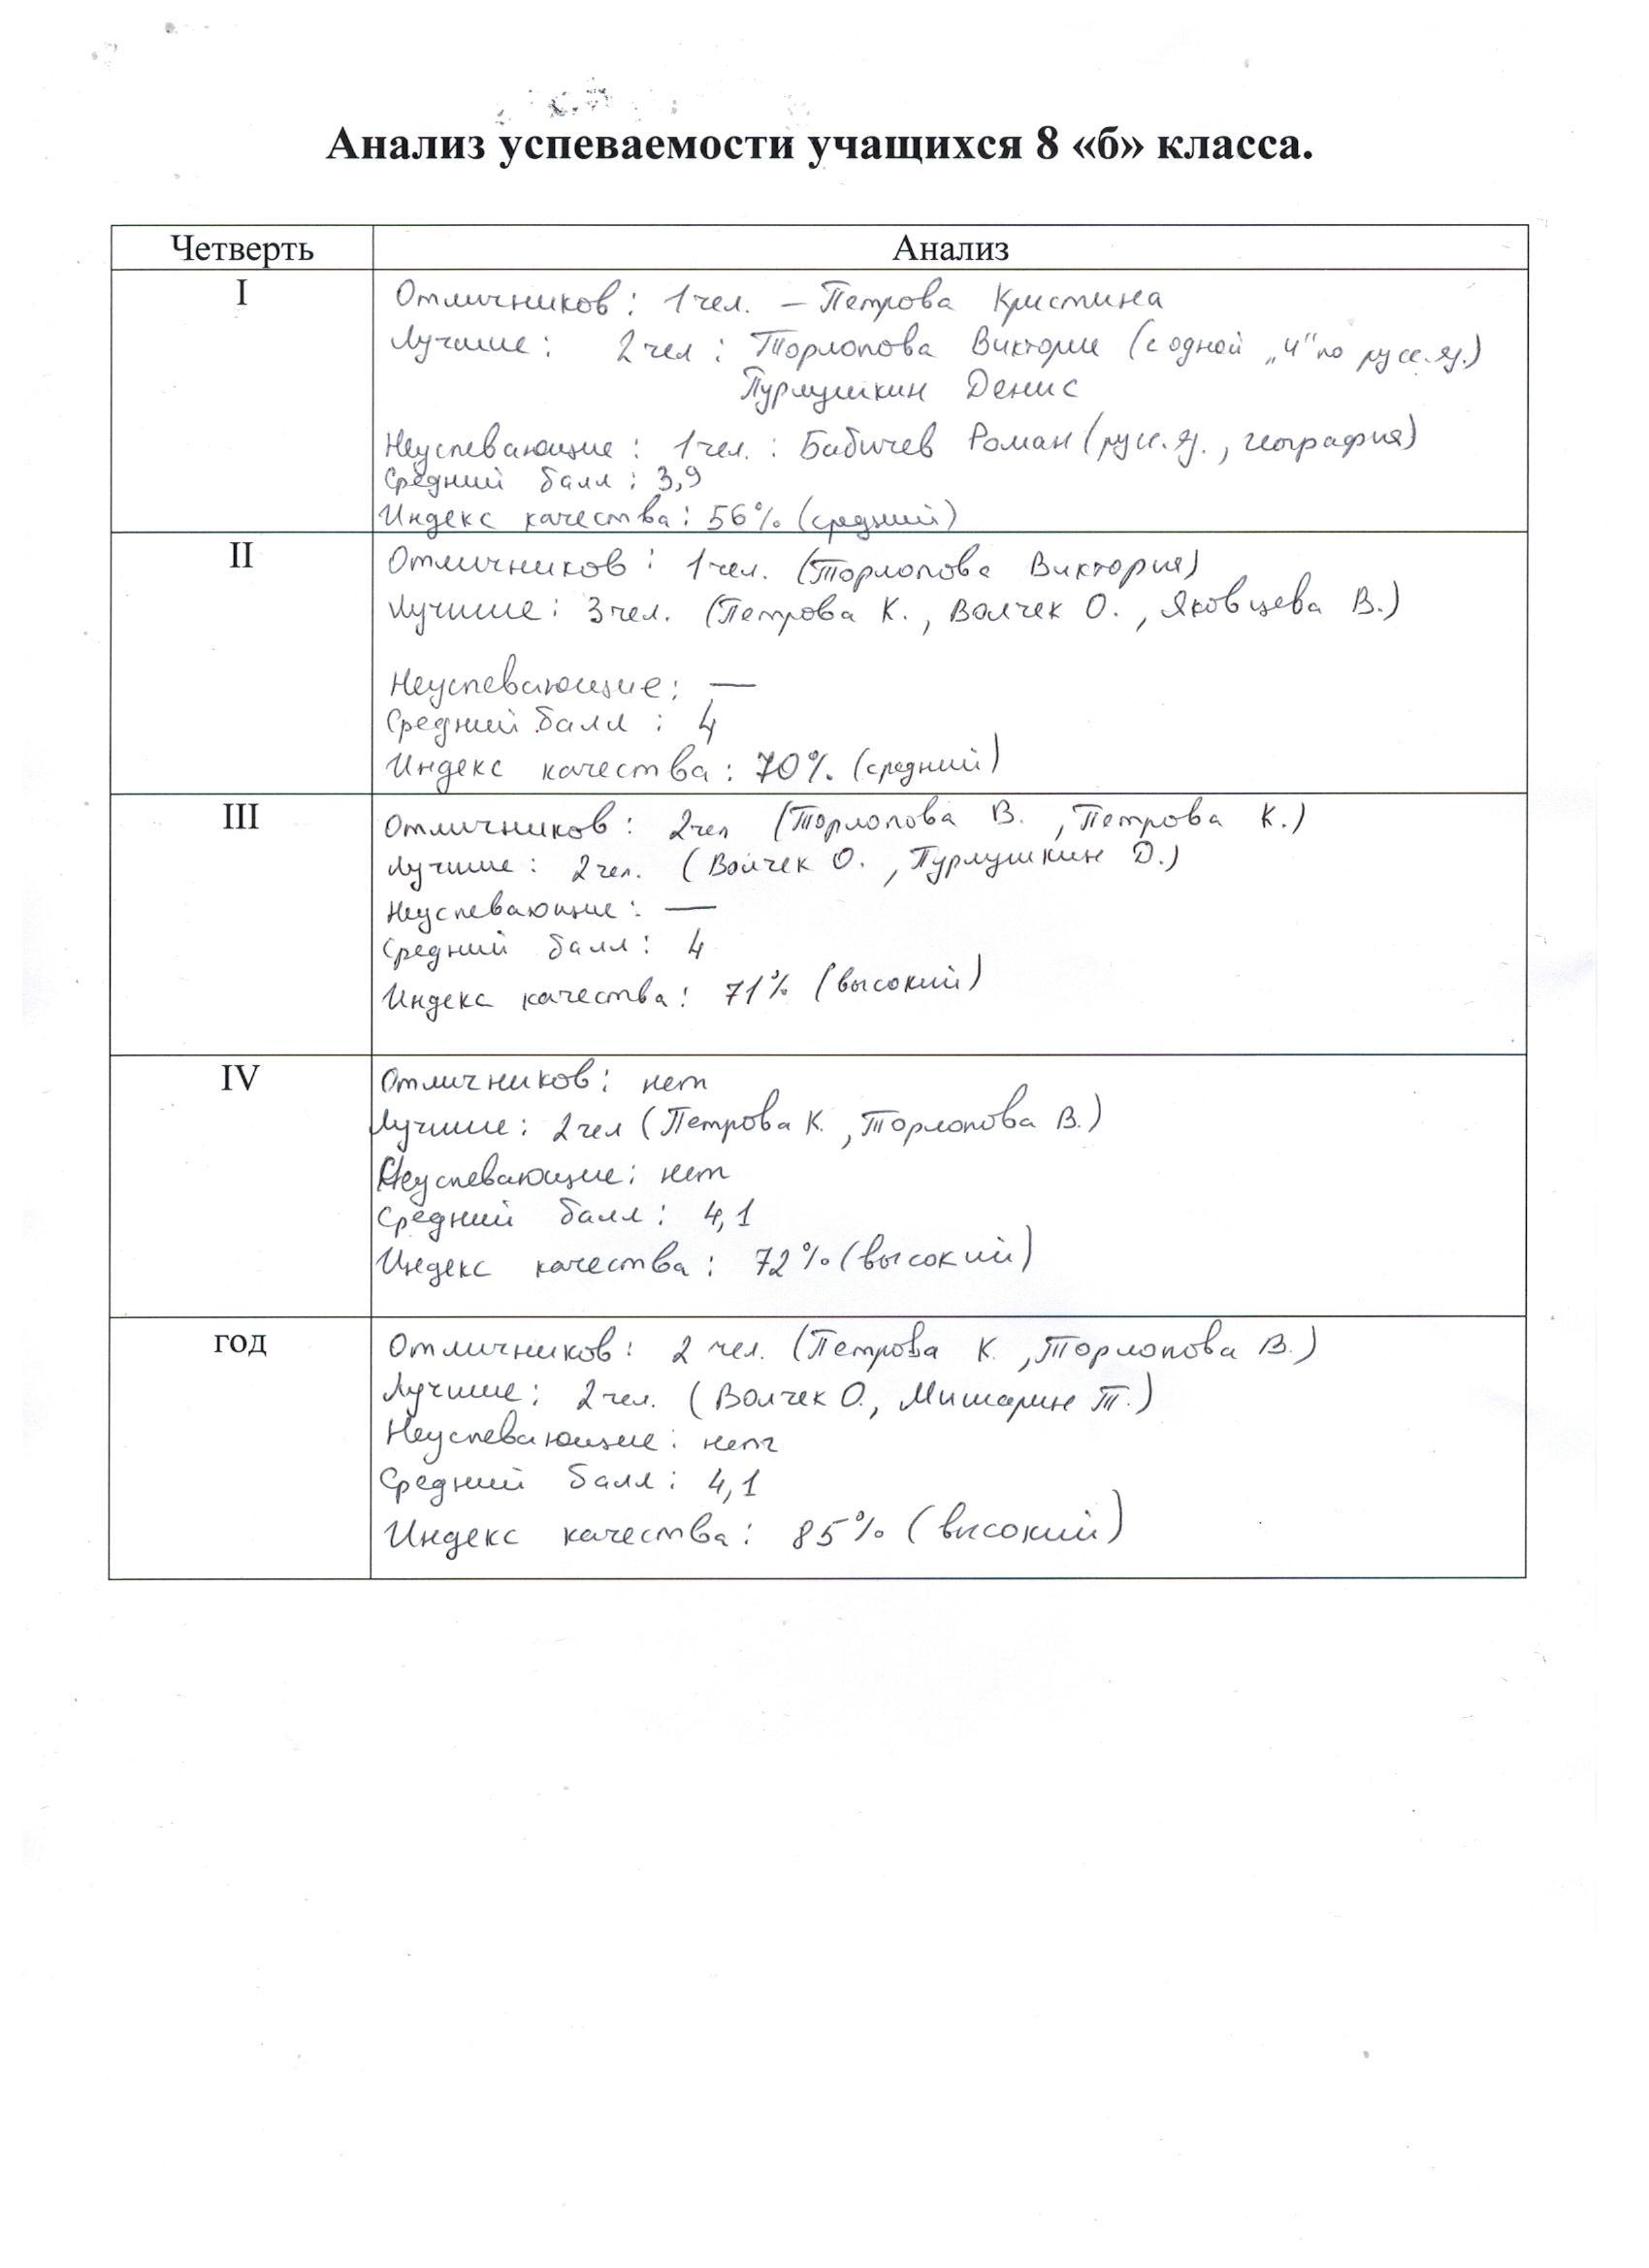 Анализ успеваемости учащихся 8 «б» класса.
Четверть Анализ
I
Отличников: 1 чел. – Петрова Кристина
Лучшие: 2 чел: Торлопова Виктория (с одной „4" по русс. яз.)
Пурлушкин Денис
Неуспевающие: 1 чел.: Бабичев Роман (русс. яз., география)
Средний балл: 3,9
Индекс качества: 56% (средний)
II
Отличников: 1 чел. (Торлопова Виктория)
Лучшие: 3 чел. (Петрова К., Волчек О., Яковцева В.)
Неуспевающие: —
Средний балл: 4
Индекс качества: 70% (средний)
III
Отличников: 2 чел (Торлопова В., Петрова К.)
Лучшие: 2 чел. (Волчек О., Пурлушкин Д.)
Неуспевающие: —
Средний балл: 4
Индекс качества: 71% (высокий)
IV
Отличников: нет
Лучшие: 2 чел (Петрова К., Торлопова В.)
Неуспевающие: нет
Средний балл: 4,1
Индекс качества: 72% (высокий)
год
Отличников: 2 чел. (Петрова К., Торлопова В.)
Лучшие: 2 чел. (Волчек О., Мишарин Т.)
Неуспевающие: нет
Средний балл: 4,1
Индекс качества: 85% (высокий)